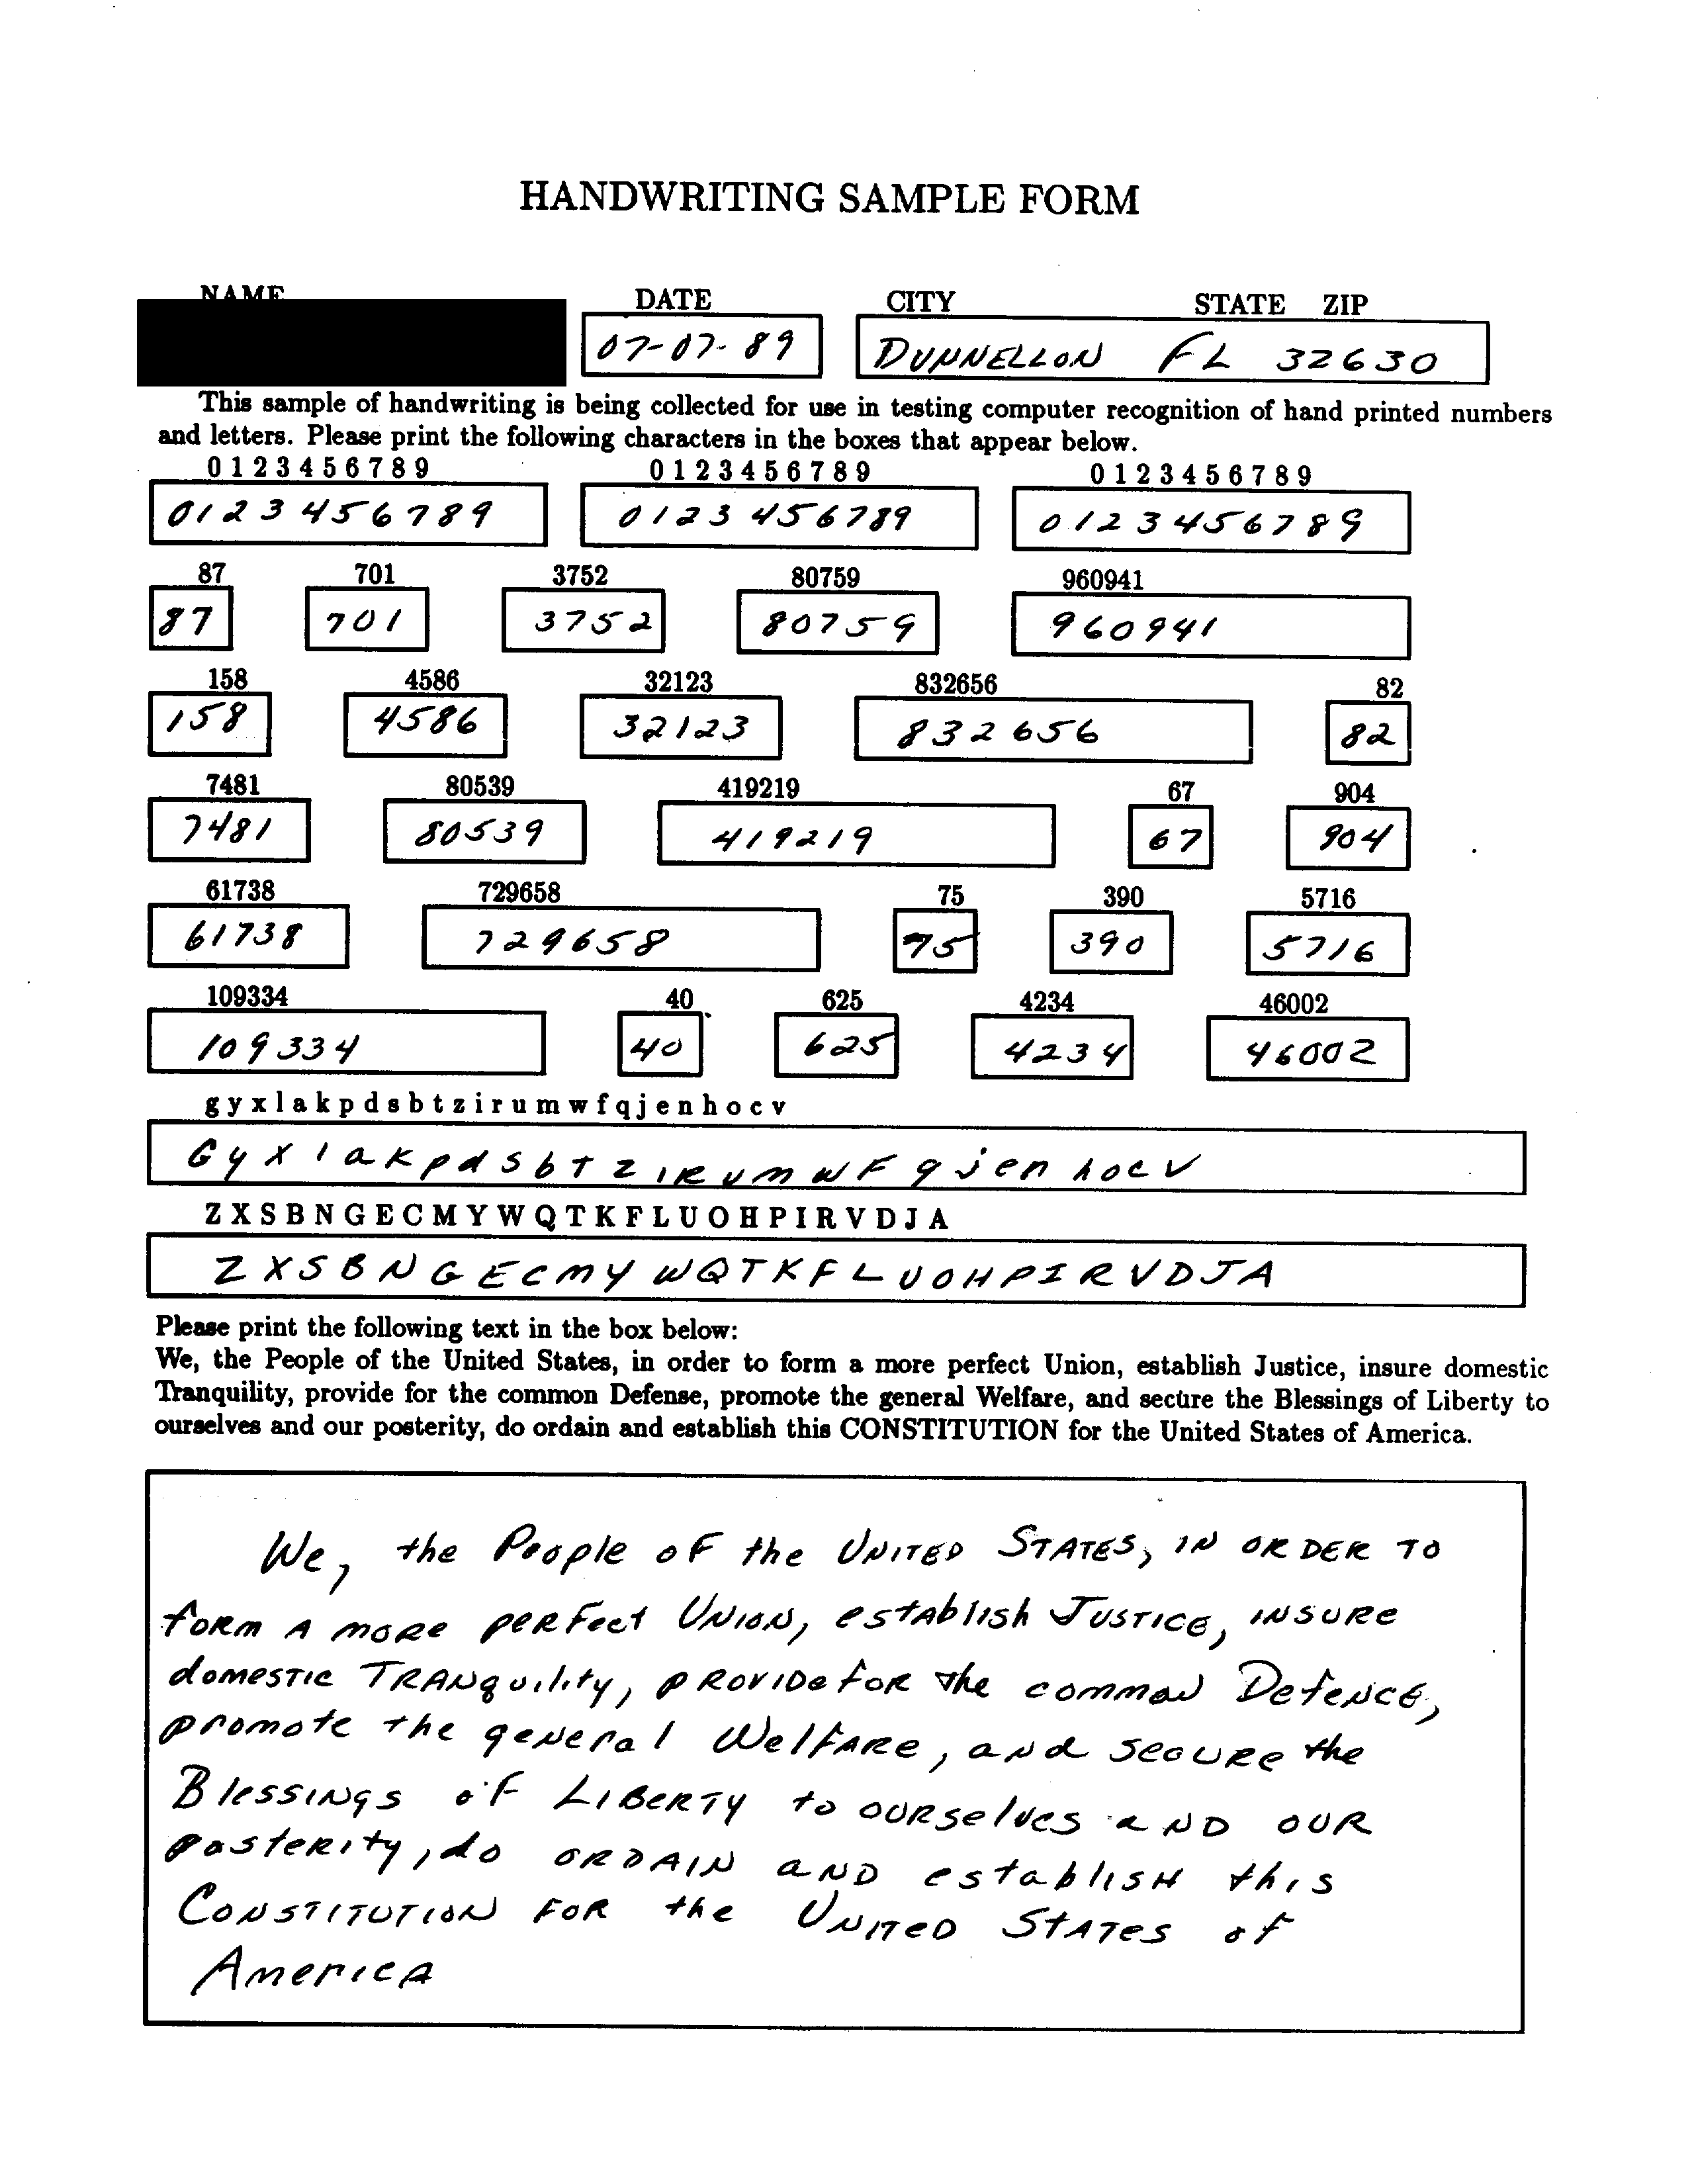 HANDWRITING SAMPLE FORM
NAME DATE CITY STATE ZIP
07-07-89 DUNNELLON FL 32630
This sample of handwriting is being collected for use in testing computer recognition of hand printed numbers
and letters. Please print the following characters in the boxes that appear below.
0 1 2 3 4 5 6 7 8 9 0 1 2 3 4 5 6 7 8 9 0 1 2 3 4 5 6 7 8 9
0123456789 0123456789 0123456789
87 701 3752 80759 960941
87 701 3752 80759 960941
158 4586 32123 832656 82
158 4586 32123 832656 82
7481 80539 419219 67 904
7481 80539 419219 67 904
61738 729658 75 390 5716
61738 729658 75 390 5716
109334 40 625 4234 46002
109334 40 625 4234 46002
g y x l a k p d s b t z i r u m w f q j e n h o c v
G y X l a K p d S b T Z I R U m W F q j e n h o c V
Z X S B N G E C M Y W Q T K F L U O H P I R V D J A
Z X S B N G E C M Y W Q T K F L U O H P I R V D J A
Please print the following text in the box below:
We, the People of the United States, in order to form a more perfect Union, establish Justice, insure domestic
Tranquility, provide for the common Defense, promote the general Welfare, and secure the Blessings of Liberty to
ourselves and our posterity, do ordain and establish this CONSTITUTION for the United States of America.
We, the People oF the UNITED STATES, IN ORDER TO
foRm A moRe peRFect UNION, estAblish JUSTICE, INSURE
domesTic TRANquility, pRovIDe foR the common DefeNce,
promote the geNeral WelfARe, aNd secuRe the
BlessiNgs oF LIBeRTY to ouRselves aND OUR
posteRity, do ORDAIN aND establisH this
CoNSTITUTION FOR the UNITeD StATes of
AmericA